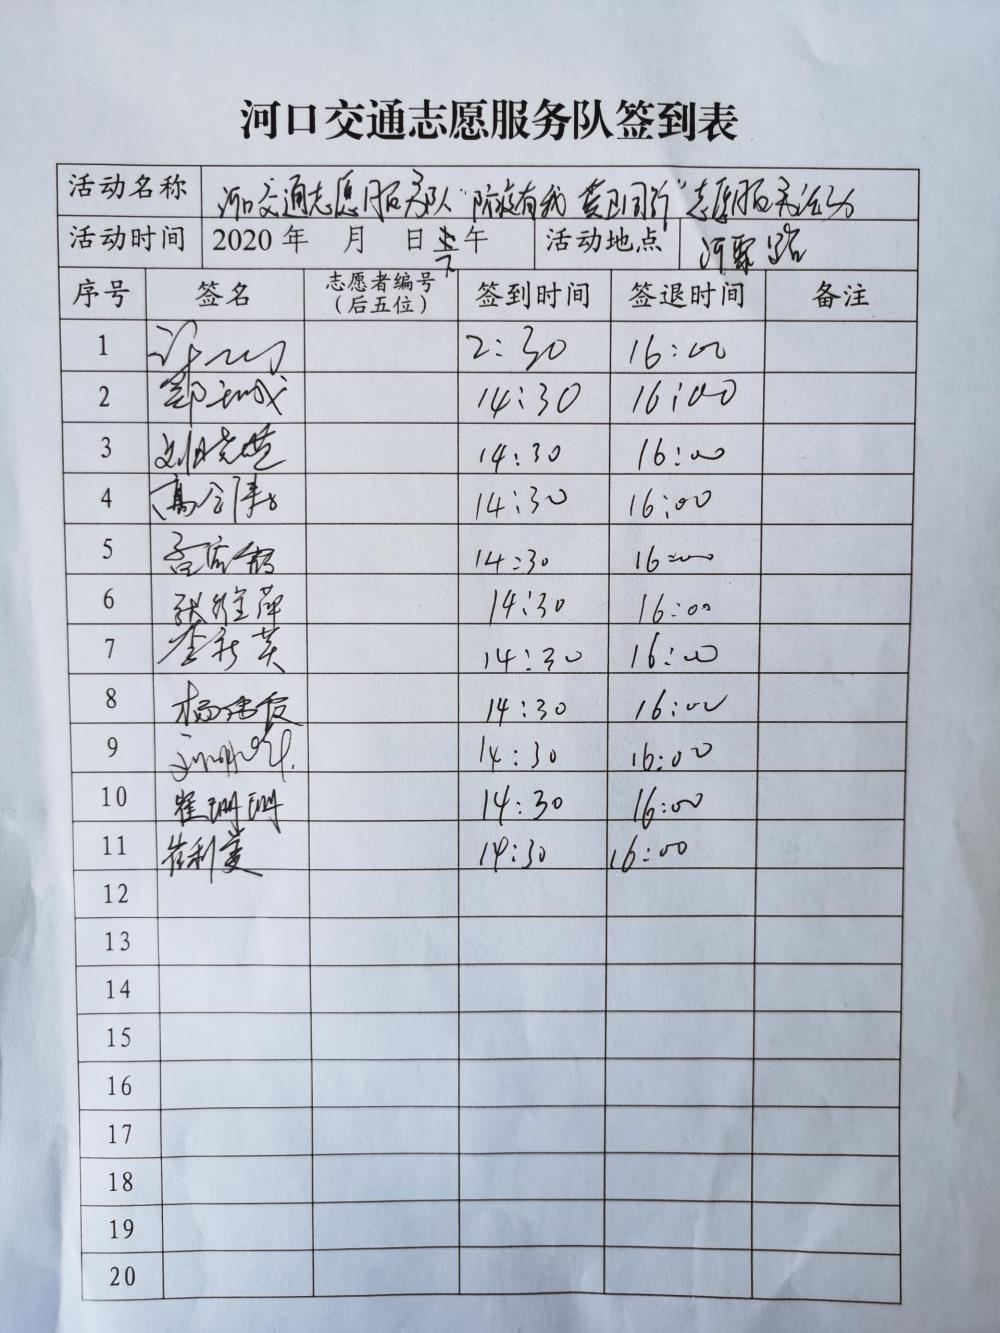 河口交通志愿服务队签到表
活动名称 河口交通志愿服务队"防疫有我 爱卫同行"志愿服务活动
活动时间 2020年 月 日下午 活动地点 河聚路
序号 签名 志愿者编号(后五位) 签到时间 签退时间 备注
1 2:30 16:00
2 14:30 16:00
3 14:30 16:00
4 高 14:30 16:00
5 14:30 16:00
6 张 萍 14:30 16:00
7 李秋英 14:30 16:00
8 杨 14:30 16:00
9 14:30 16:00
10 崔珊珊 14:30 16:00
11 崔利 14:30 16:00
12
13
14
15
16
17
18
19
20